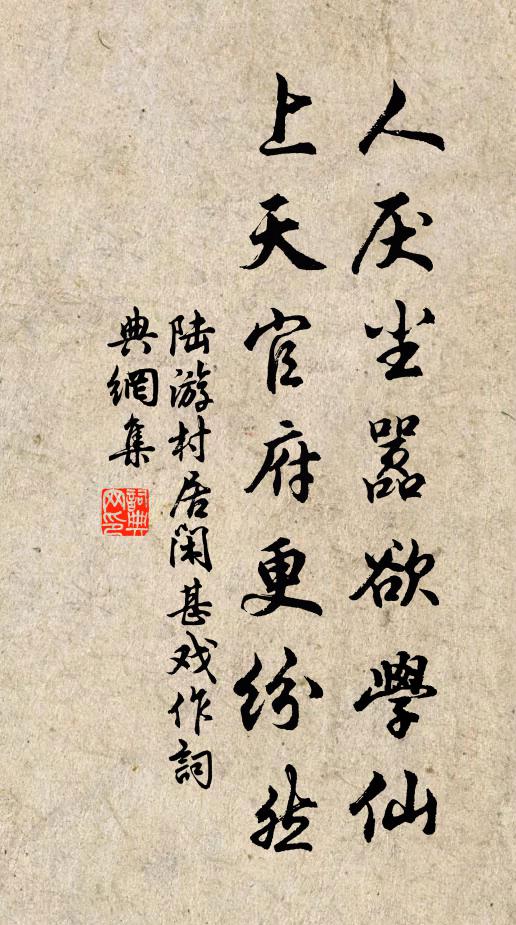 人厌尘嚣欲學仙
上天官府更纷然
陆游村居闲甚戏作詞
典網集
詞典网印